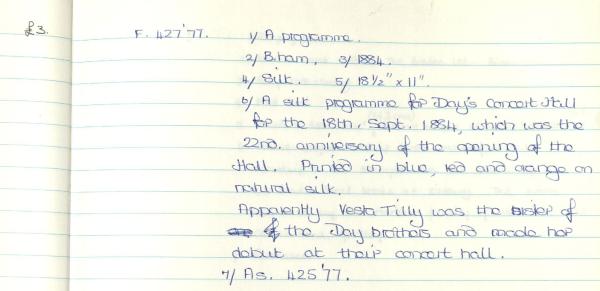 £3. F. 427'77. 1/ A programme.
2/ B.ham, 3/ 1884.
4/ Silk. 5/ 18½" x 11".
6/ A silk programme for Day's Concert Hall
for the 18th. Sept. 1884, which was the
22nd. anniversary of the opening of the
Hall. Printed in blue, red and orange on
natural silk.
Apparently Vesta Tilly was the sister of
the Day brothers and made her
debut at their concert hall.
7/ As. 425'77.